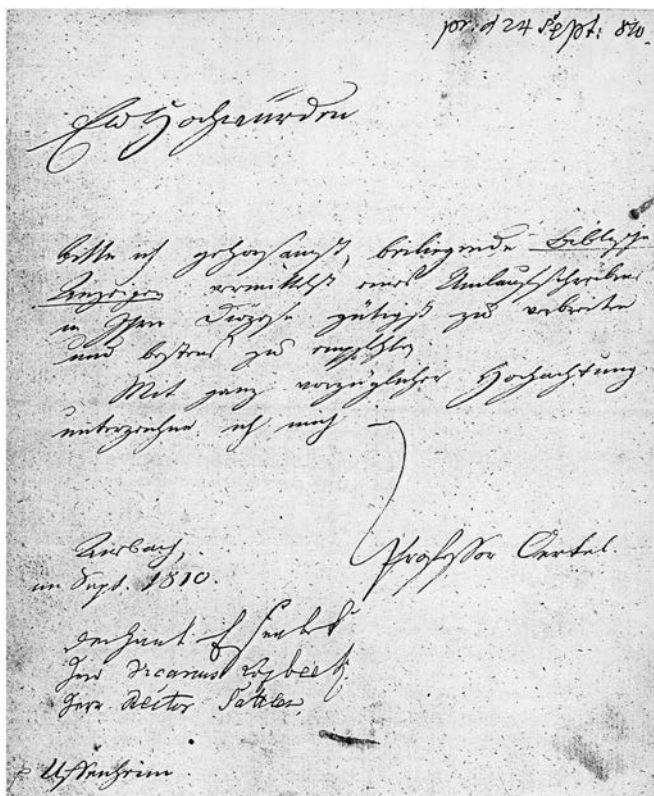 pr. d 24 Sept. 810.
Ew Hochwürden
bitte ich gehorsamst, beiliegende Biblische
Anzeigen vermittelst eines Umlaufschreibens
in Ihrer Diözese gütigst zu verbreiten
und bestens zu empfehlen.
Mit ganz vorzüglicher Hochachtung
unterzeichne ich mich
Professor Oertel.
Ansbach,
im Sept. 1810.
Dechant
Herr Vicarius
Herr Rector Sattler
Uffenheim.